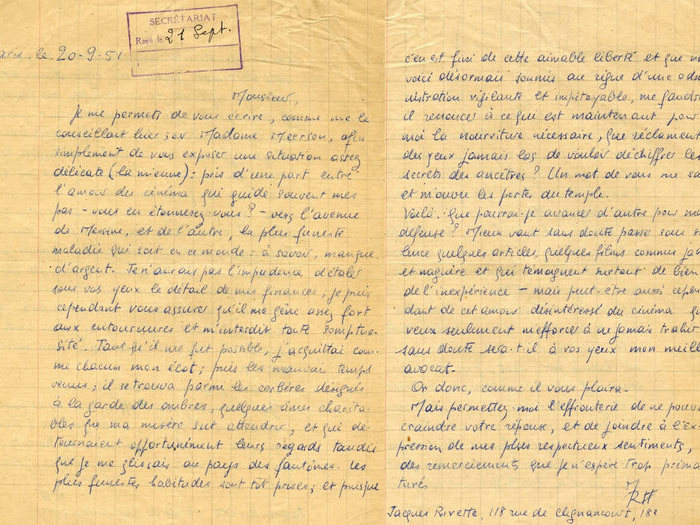 SECRÉTARIAT
Reçu le 21 Sept.
Paris. le 20-9-51
Monsieur,
Je me permets de vous écrire, comme me le
conseillait hier soir Madame Meerson, afin
simplement de vous exposer une situation assez
délicate (la mienne) : pris d'une part entre
l'amour du cinéma qui guide souvent mes
pas - vous en étonnerez-vous ? - vers l'avenue
de Messine, et de l'autre, la plus funeste
maladie qui soit en ce monde : à savoir, manque
d'argent. Je n'aurais pas l'impudence d'étaler
sous vos yeux le détail de mes finances ; je puis
cependant vous assurer qu'il me gêne assez fort
aux entournures et m'interdit toute somptuo-
sité. Tant qu'il me fut possible, j'acquittai com-
me chacun mon écot ; puis les mauvais temps
venus, il se trouva parmi les cerbères désignés
à la garde des ombres, quelques âmes charita-
bles que ma misère sut attendrir, et qui dé-
tournaient opportunément leurs regards tandis
que je me glissais au pays des fantômes. Les
plus funestes habitudes sont tôt prises ; et puisque
c'en est fini de cette aimable liberté et que
voici désormais soumis au règne d'une
vigilante et impitoyable, me
il renoncer à ce qui est maintenant pour
moi la nourriture nécessaire, que réclament
des yeux jamais las de vouloir déchiffrer les
secrets des ancêtres ? Un mot de vous me
et m'ouvre les portes du temple.
Voilà. Que pourrai-je avancer d'autre pour
défense ? Mieux vaut sans doute passer sous
quelques articles, quelques films commis
et naguère et qui témoignent surtout de bien
de l'inexpérience - mais peut-être aussi
dant de cet amour désintéressé du cinéma
veux seulement m'efforcer à ne jamais trahir
sans doute sera-t-il à vos yeux mon
avocat.
Or donc, comme il vous plaira.
Mais permettez-moi l'effronterie de ne
craindre votre réponse, et de joindre à l'ex-
pression de mes plus respectueux sentiments,
des remerciements que je n'espère trop préma-
turés
Jacques Rivette, 118 rue de Clignancourt, 18e